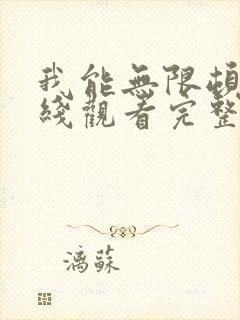 我能無限頓
綫觀看完整
漓蘇